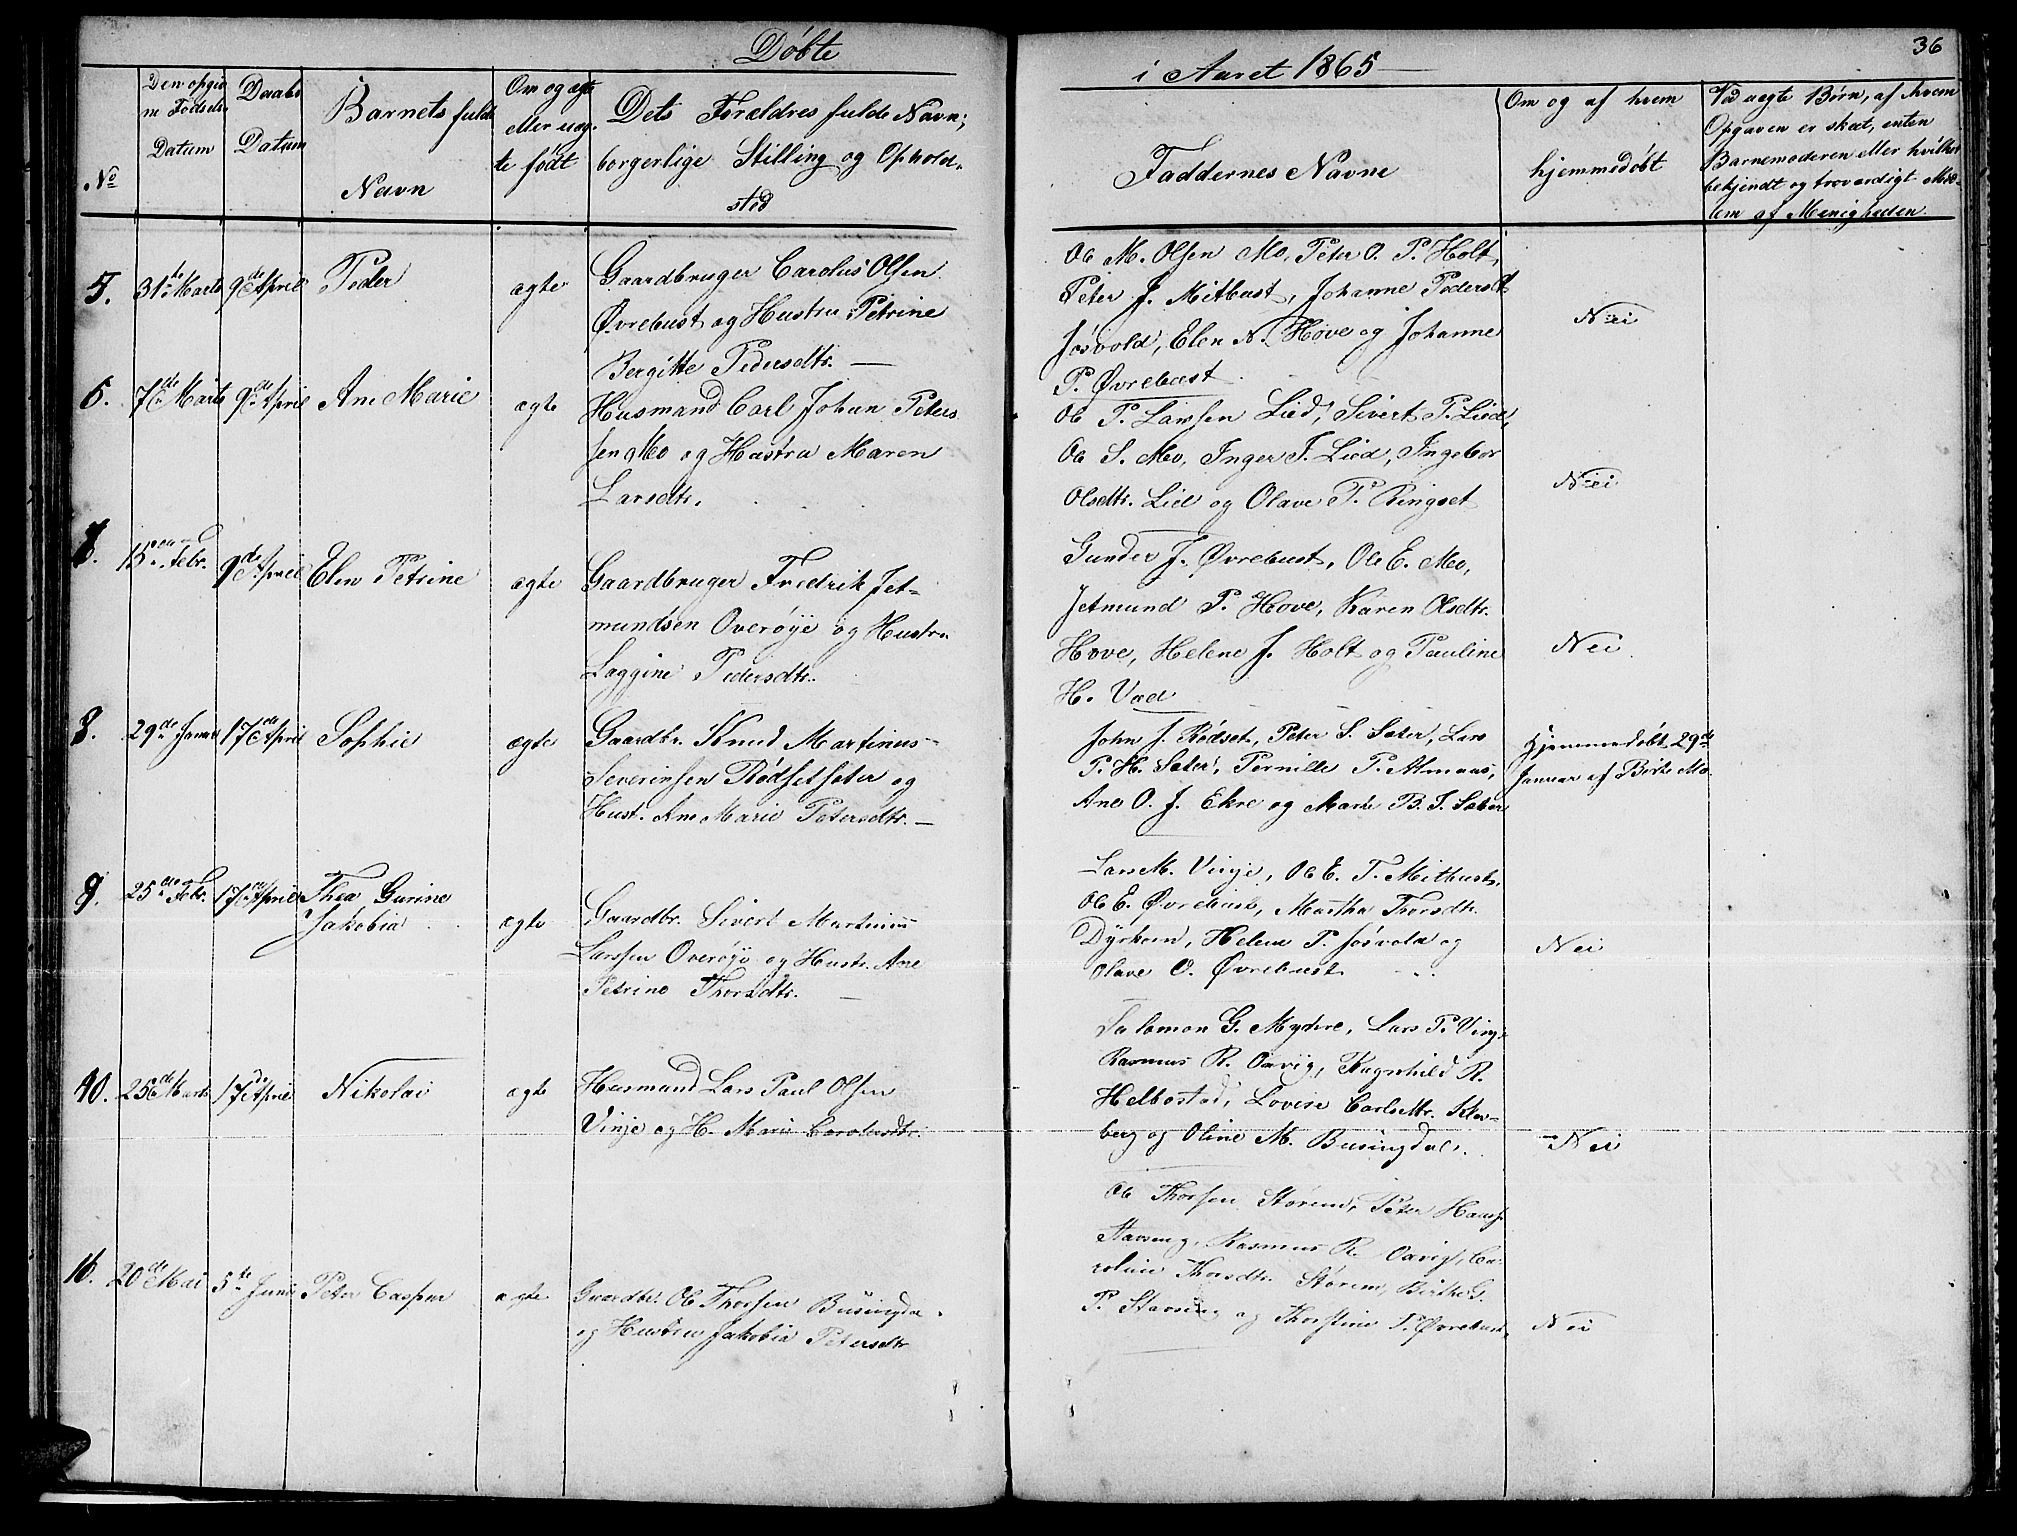 Døbte
i Aaret 1865
36
No
Den opgiv
ne Fødsels
Datum
Daabs
Datum
Barnets fulde
Navn
Om og ægt
eller uæg-
te født
Dets Forældres fulde Navn,
borgerlige Stilling og Ophold-
sted
Faddernes Navne
Om og af hvem
hjemmedøbt
Ved uægte Børn, af hvem
Opgaven er skeet, enten
Barnemoderen eller hvilket
bekjendt og troværdigt Med-
lem af Menigheden.
5.
31te Marts
9de April
Peder
ægte
Gaardbruger Carolus Olsen
Øvrebust og Hustru Petrine
Bergitte Pedersdtr. —
Ole M. Olsen Mo, Peter O. P. Holt,
Peter J. Mitbust, Johanne Pedersdt
Josvold, Elen N. Hove og Johanne
P. Øvrebust
Nei
6.
7de Marts
9de April
Ane Marie
ægte
Husmand Carl Johan Peters
sen Mo og Hustru Maren
Larsdtr.
Ole P. Larssen Lied, Sivert P. Lied,
Ole S. Mo, Inger T. Lied, Ingebor
Olsdtr. Lied og Olave P. Ringset
Nei
7.
15de Febr.
9de April
Elen Petrine
ægte
Gaardbruger Fredrik Jet-
mundsen Overøye og Hustru
Laggine Pedersdtr.
Gunder J. Øvrebust, Ole E. Mo,
Jetmund P. Hove, Karen Olsdtr.
Hove, Helene J. Holt og Pauline
H. Vad
Nei
8.
29de Januar
17de April
Sophie
ægte
Gaardbr. Knud Martinus
Severinsen Rødsetseter og
Hust. Ane Marie Petersdtr. —
John J. Rødset, Peter S. Sæter, Lars
P. H. Sæter, Pernille P. Almaas,
Ane O. J. Ekre og Marte B. T. Sæter
Hjemmedøbt 29de
Januar af Birte Mo.
9.
25de Febr.
17de April
Thea Gurine
Jakobia
ægte
Gaardbr. Sivert Martinus
Larssen Overøye og Hustr. Ane
Petrine Thorsdtr. —
Lars M. Vinje, Ole E. T. Mitbust,
Ole E. Øvrebust, Martha Thorsdtr.
Dyrkorn, Helene P. Josvold og
Olave O. Øvrebust
Nei
10.
25de Marts
17de April
Nikolai
ægte
Husmand Lars Paul Olsen
Vinje og H. Marie Carolusdtr.
Salomon G. Myhre, Lars P. Vinje
Rasmus R. Overvig, Ragnhild R.
Helbostad, Lovise Carlsdtr. Klov-
berg og Oline M. Busengdal.
Nei
11.
20de Mai
5te Juni
Peter Casper
ægte
Gaardbr. Ole Thorssen Busengdal
og Hustru Jakobia Petersdtr
Ole Thorssen Storem, Peter Hanss.
Stavseng, Rasmus R. Overvig, Ca-
roline Thorsdtr. Storem, Birthe G.
P. Stavseng og Thorstine P. Øvrebust,
Nei